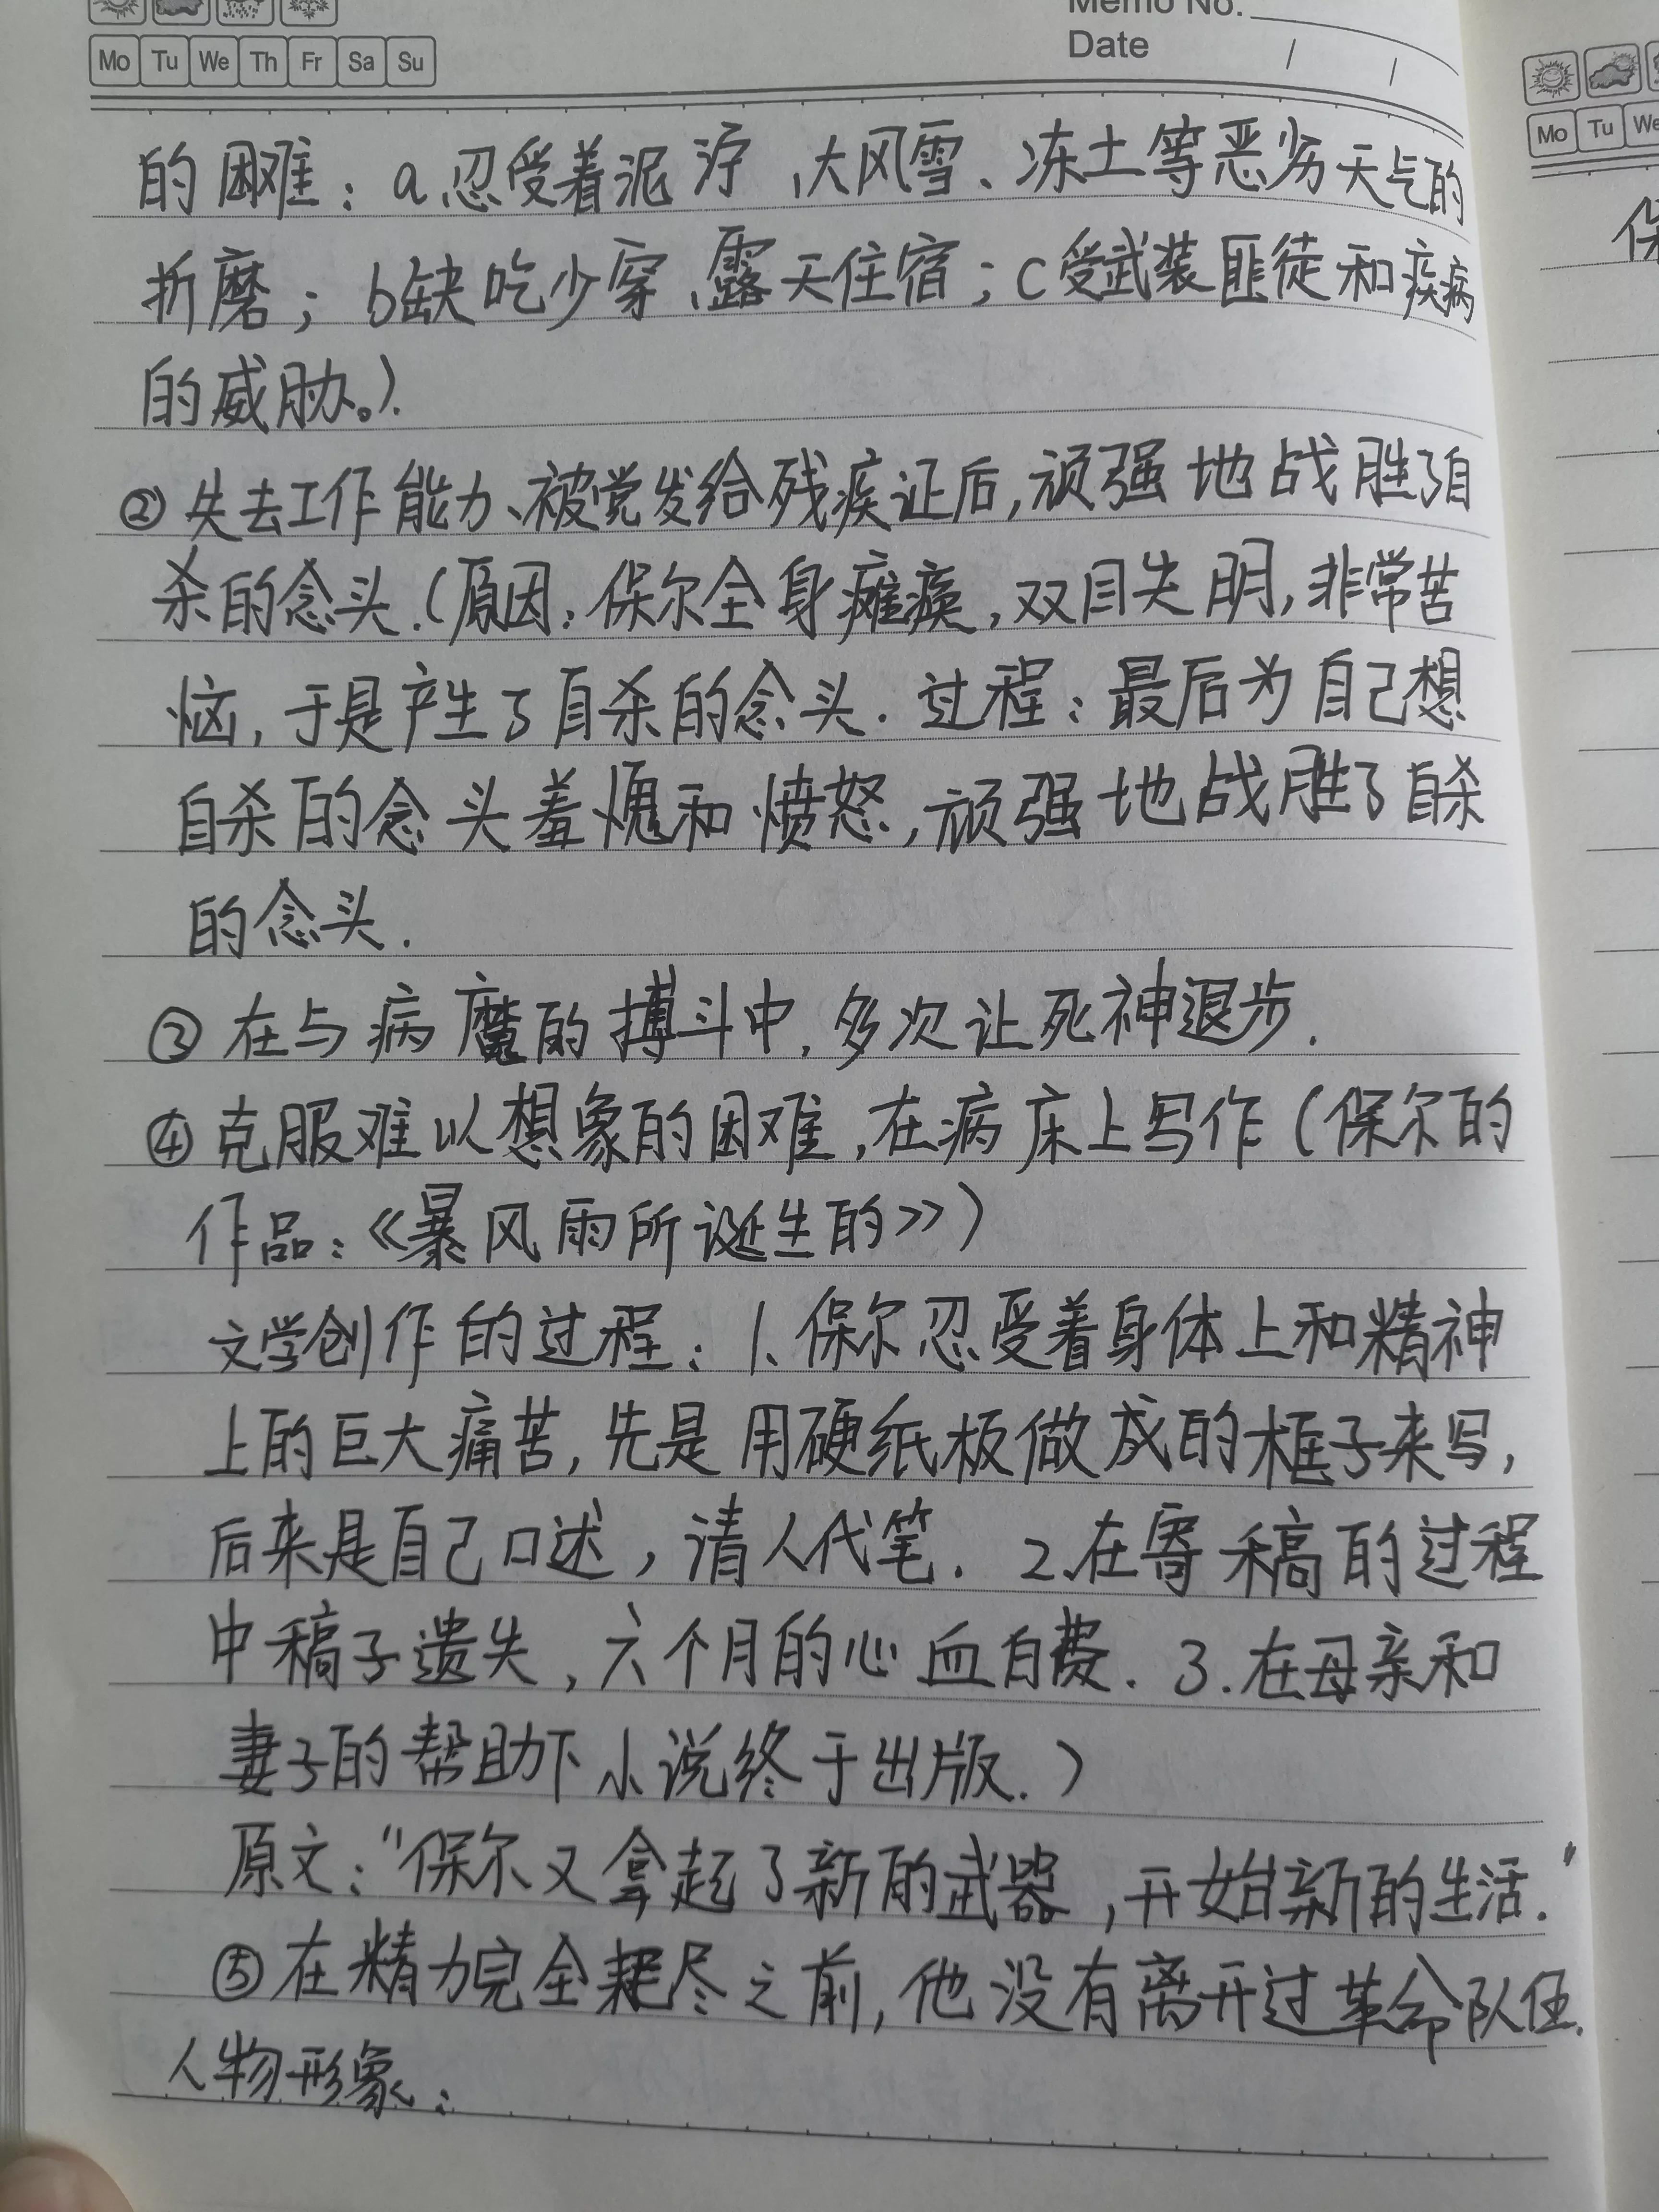 Memo No.
Mo Tu We Th Fr Sa Su
Date / /
的困难：a.忍受着泥泞、大风雪、冻土等恶劣天气的
折磨；b缺吃少穿、露天住宿；c受武装匪徒和疾病
的威胁。).
②失去工作能力、被党发给残疾证后,顽强地战胜了自
杀的念头.(原因:保尔全身瘫痪,双目失明,非常苦
恼,于是产生了自杀的念头.过程:最后为自己想
自杀的念头羞愧和愤怒,顽强地战胜了自杀
的念头.
③在与病魔的搏斗中,多次让死神退步.
④克服难以想象的困难,在病床上写作(保尔的
作品:《暴风雨所诞生的》)
文学创作的过程:1、保尔忍受着身体上和精神
上的巨大痛苦,先是用硬纸板做成的框子来写,
后来是自己口述,请人代笔.2、在寄稿的过程
中稿子遗失,六个月的心血白费.3.在母亲和
妻子的帮助下小说终于出版.)
原文:"保尔又拿起了新的武器,开始新的生活."
⑤在精力完全耗尽之前,他没有离开过革命队伍.
人物形象:
Mo Tu We
保